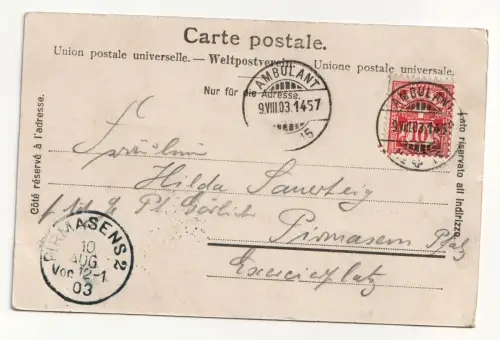 Carte postale.
Union postale universelle. — Weltpostverein. — Unione postale universale.
Nur für die Adresse.
AMBULANT
9.VIII.03.1457
15
AMBULANT
9.VIII.03.145
10
Côté réservé à l'adresse.
Lato riservato all' Indirizzo.
Fräulein
Hilda Sauerteig
Pirmasens Pfalz
Exerzierplatz
PIRMASENS 2
10
AUG
Vor 12-1
03